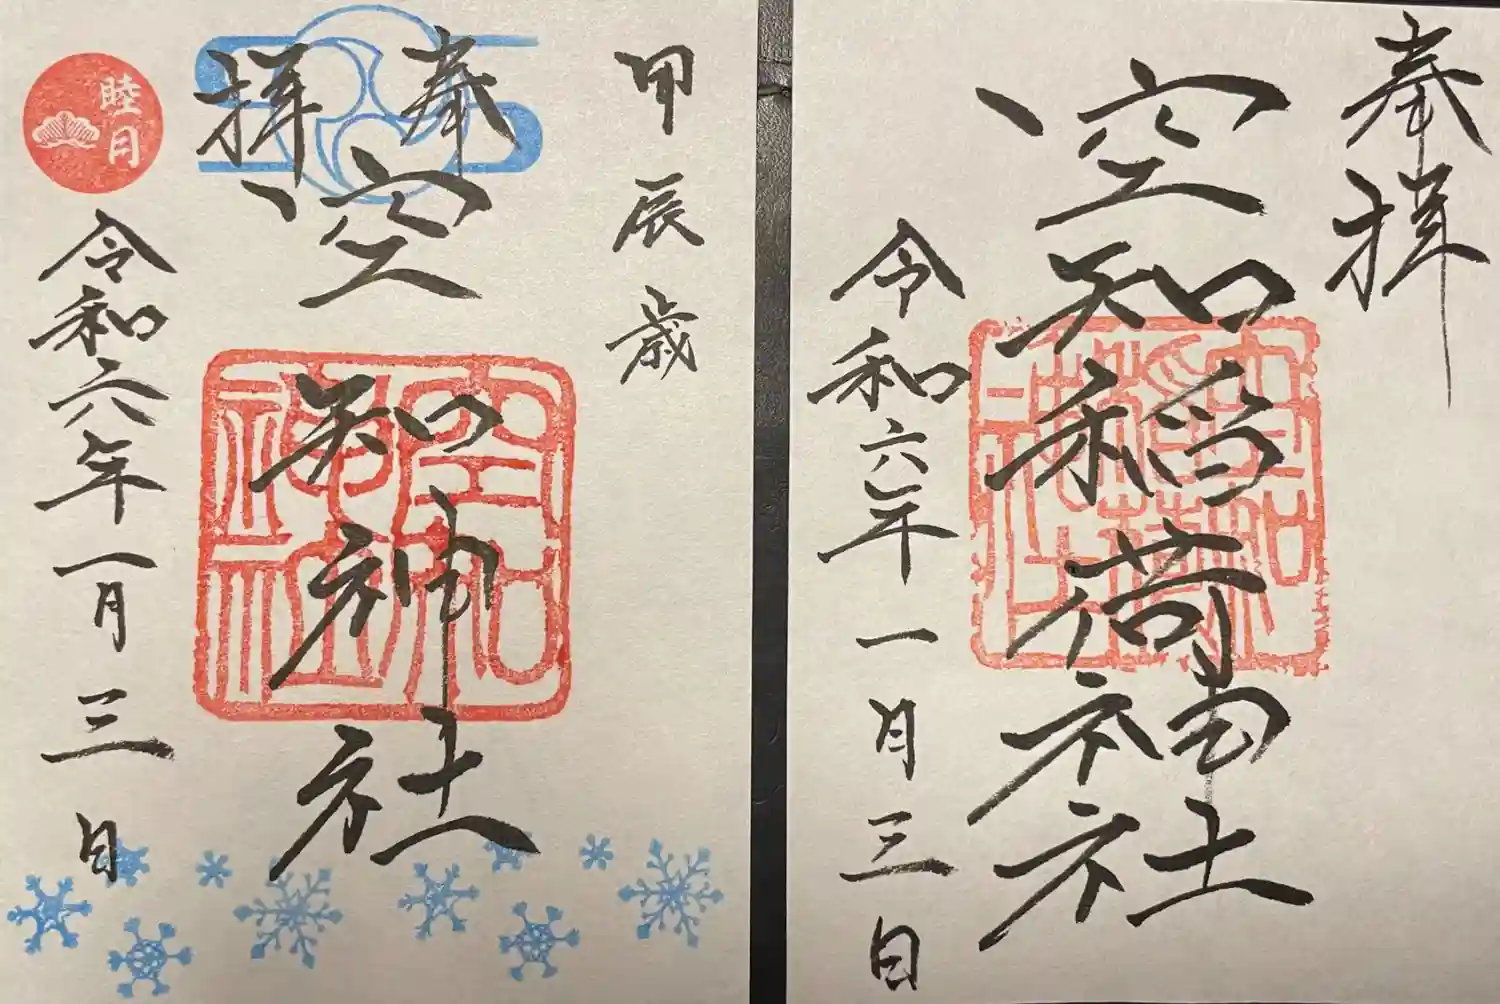 奉拝
空知稲荷神社
令和六年一月三日
空知稲荷神社
甲辰歳
奉拝
空知神社
令和六年一月三日
睦月
空知神社